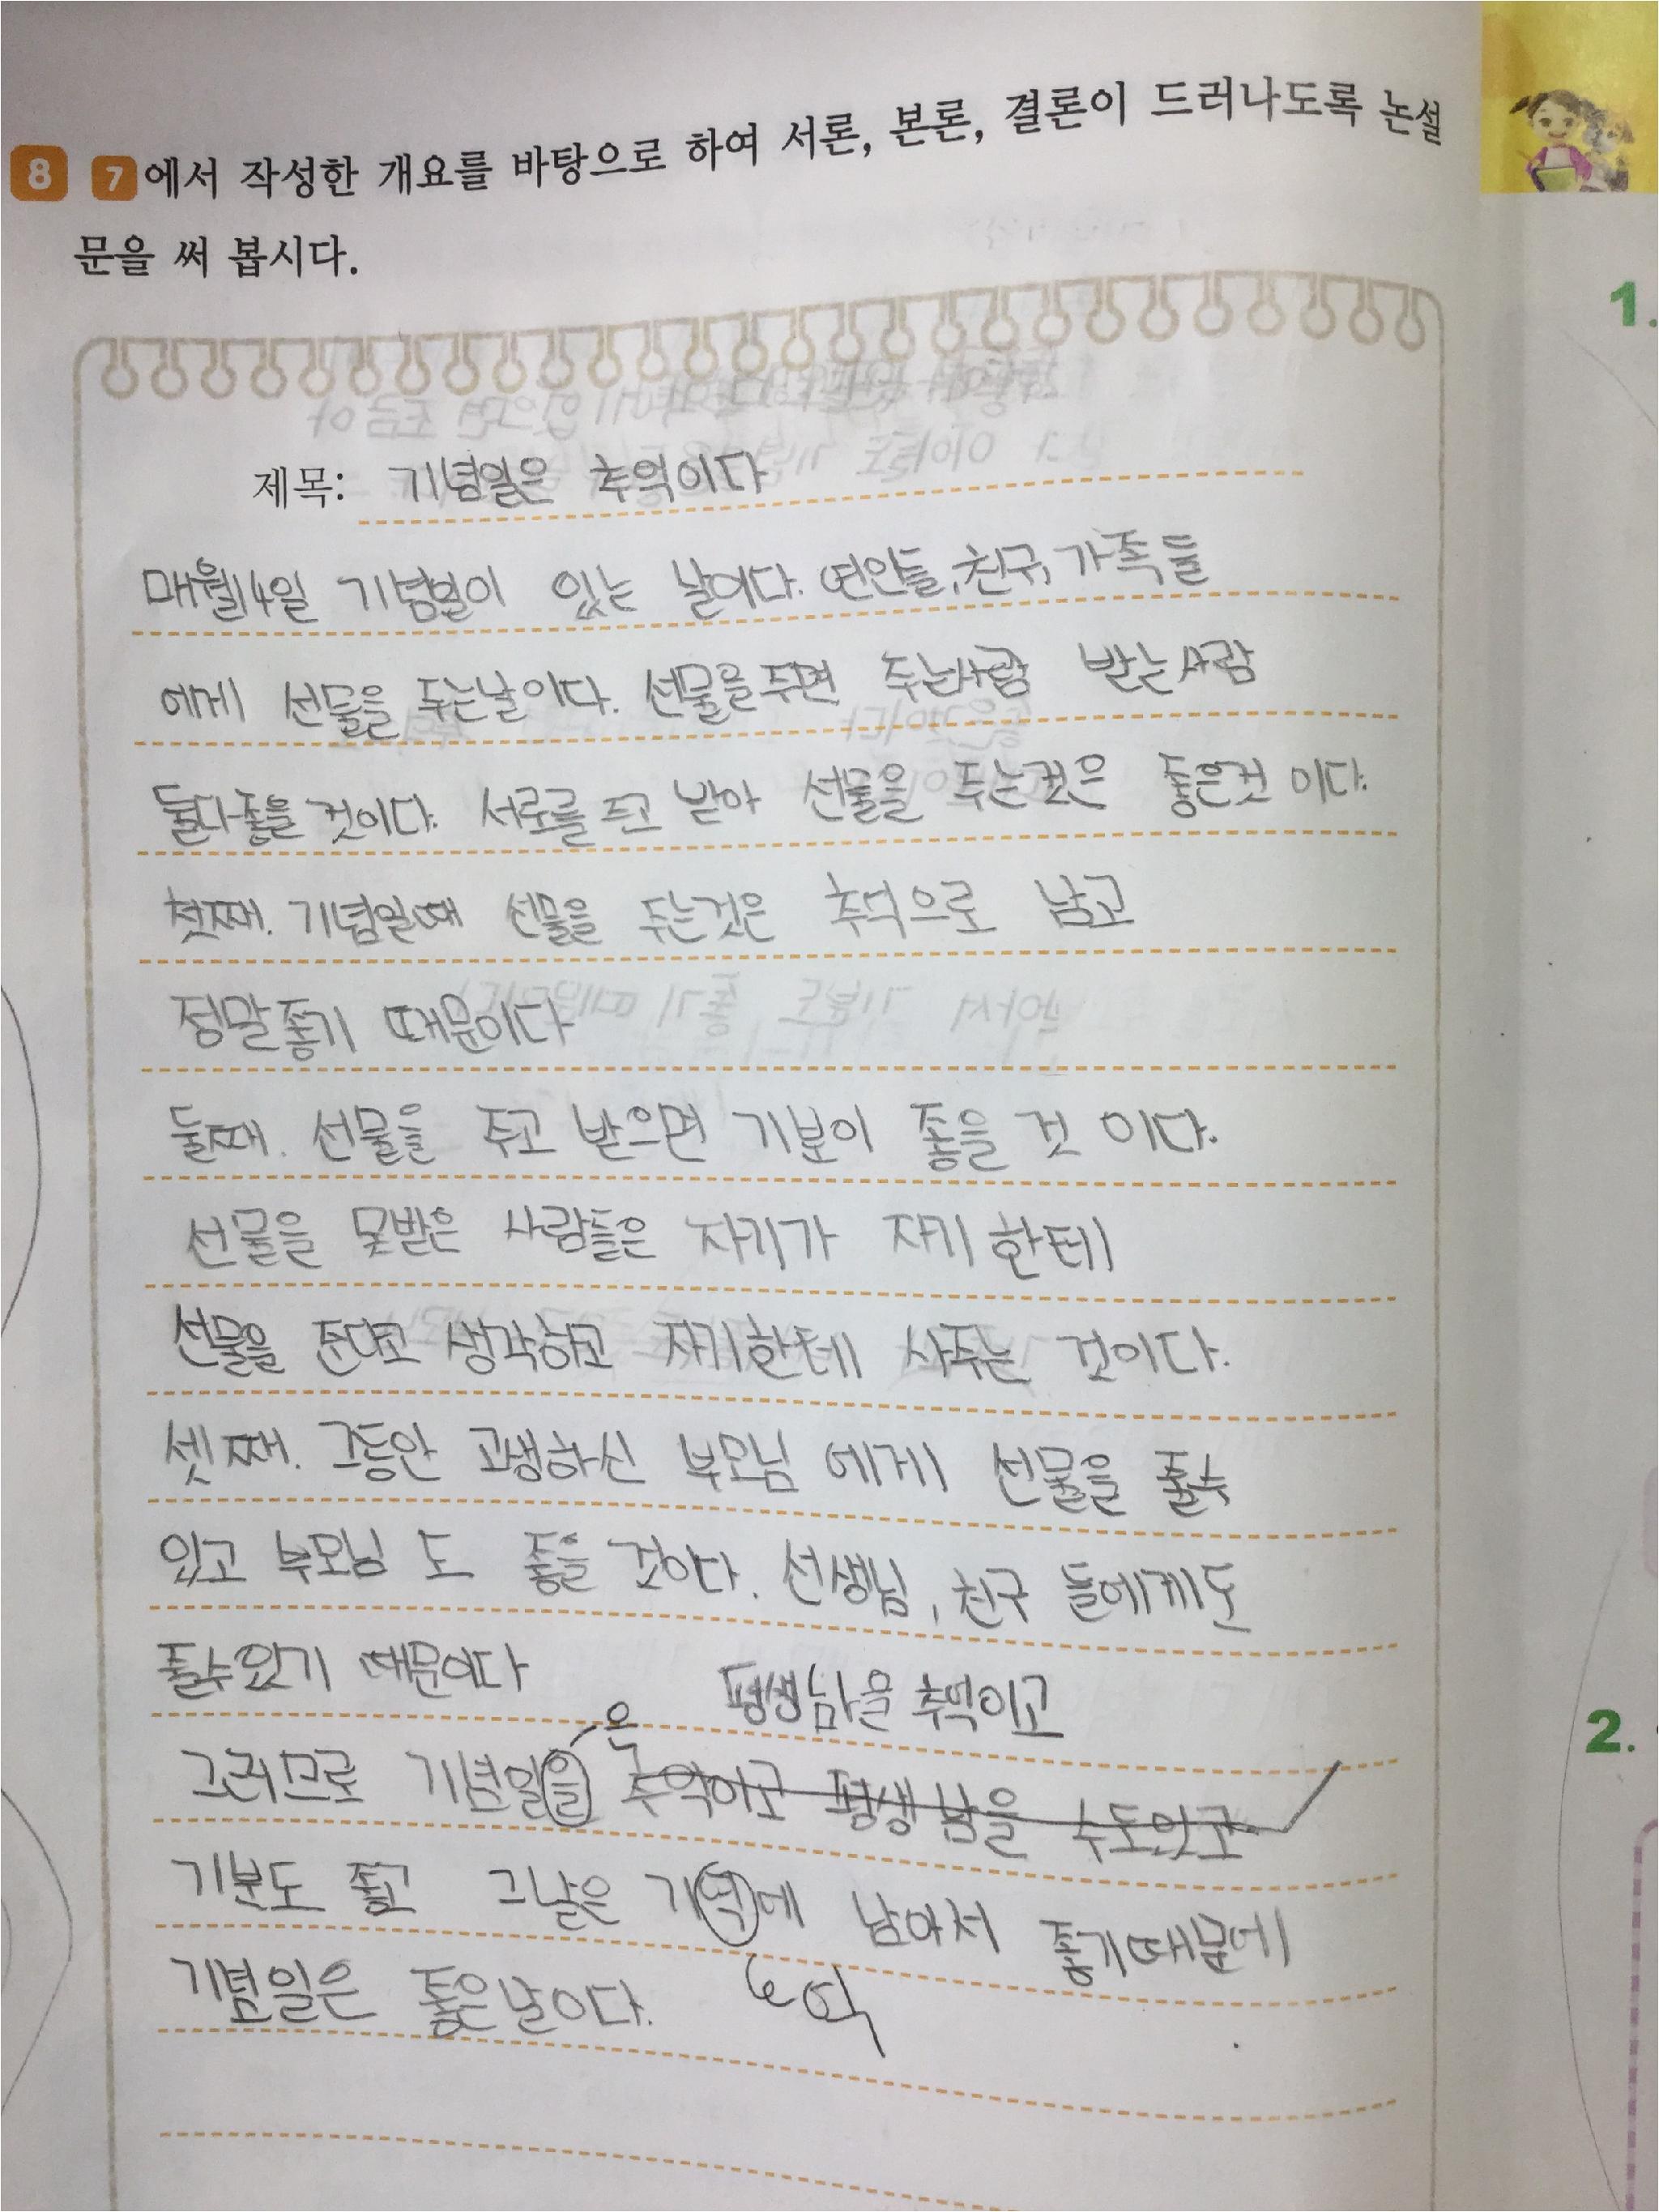 8 7에서 작성한 개요를 바탕으로 하여 서론, 본론, 결론이 드러나도록 논설
문을 써 봅시다.
1.
제목: 기념일은 추억이다
매월14일 기념일이 있는 날이다. 연인들, 친구, 가족들
에게 선물을 주는날이다. 선물을주면 주는사람 받는사람
둘다좋을 것이다. 서로를 주고 받아 선물을 주는것은 좋은것 이다.
첫째. 기념일때 선물을 주는것은 추억으로 남고
정말좋기 때문이다
둘째. 선물을 주고 받으면 기분이 좋을 것 이다.
선물을 못받은 사람들은 자기가 자기 한테
선물을 준다고 생각하고 자기한테 사주는 것이다.
셋째. 그동안 고생하신 부모님 에게 선물을 줄수
있고 부모님 도 좋을 것이다. 선생님, 친구 들에게도
줄수있기 때문이다
은 평생남을 추억이고
2.
그러므로 기념일을 추억이고 평생 남을 수도있고
기분도 좋고 그날은 기억에 남아서 좋기때문에
기념일은 좋은날이다. 억